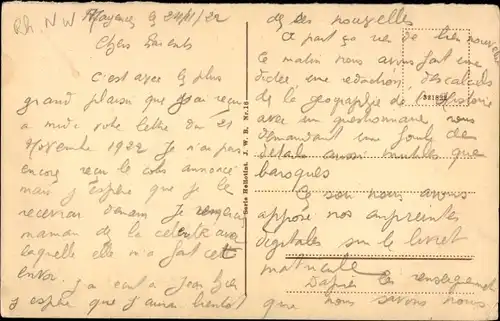 Rh. N W
Mayence, le 24/11/22
Chers Parents
C'est avec le plus
grand plaisir que j'ai reçu
à midi votre lettre du 21
Novembre 1922. Je n'ai pas
encore reçu le colis annoncé
mais j'espère que je le
recevrai demain Je remercie
maman de la célérité avec
laquelle elle m'a fait cet
envoi
J'ai écrit à Jean hier
j'espère que j'aurai bientôt
Serie Heliotint. J. W. B. Nr. 18
de ses nouvelles
A part ça rien de bien nouveau
Ce matin nous avons fait une
dictée une rédaction, des calculs
de la géographie de l'histoire
avec un questionnaire nous
demandant une foule de
détails aussi inutiles que
baroques
Ce soir nous avons
apposé nos empreintes
digitales sur le livret
matricule
D'après les renseignements
que nous savons nous